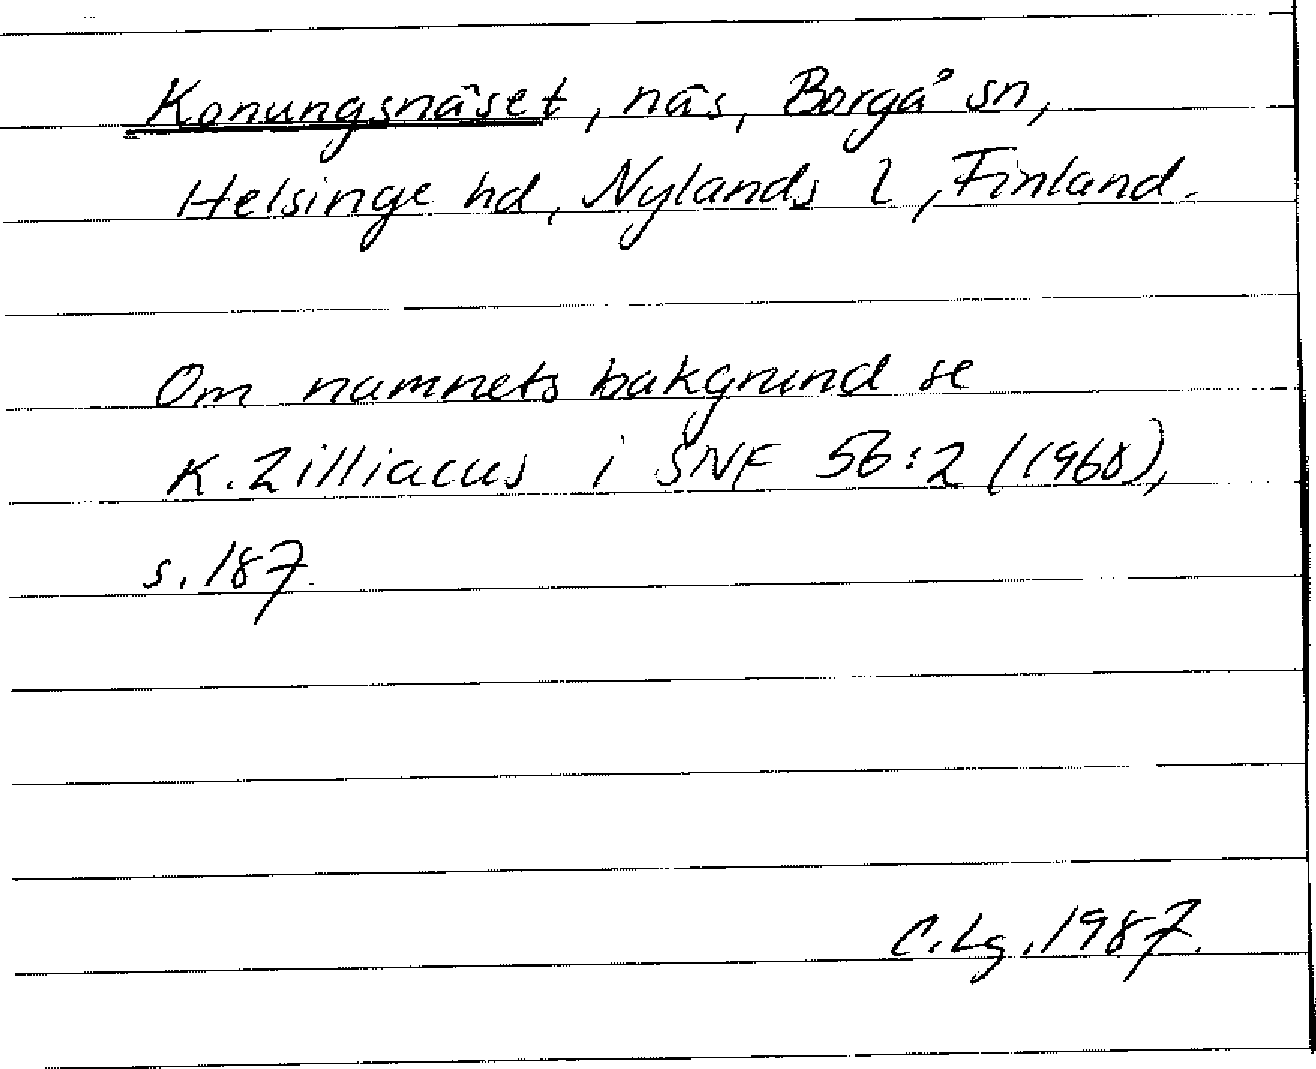 Konungsnäset, näs, Borgå sn,
Helsinge hd, Nylands l, Finland.
Om namnets bakgrund se
K. Zilliacus i SNF 56:2 (1968),
s. 187.
C. Lg. 1987.